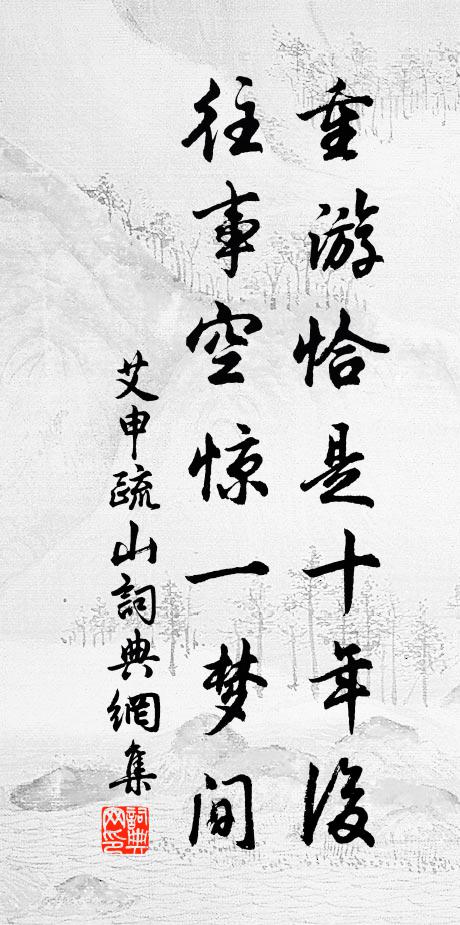 重游恰是十年後
往事空惊一梦间
艾申疏山詞典網集
詞典
网印